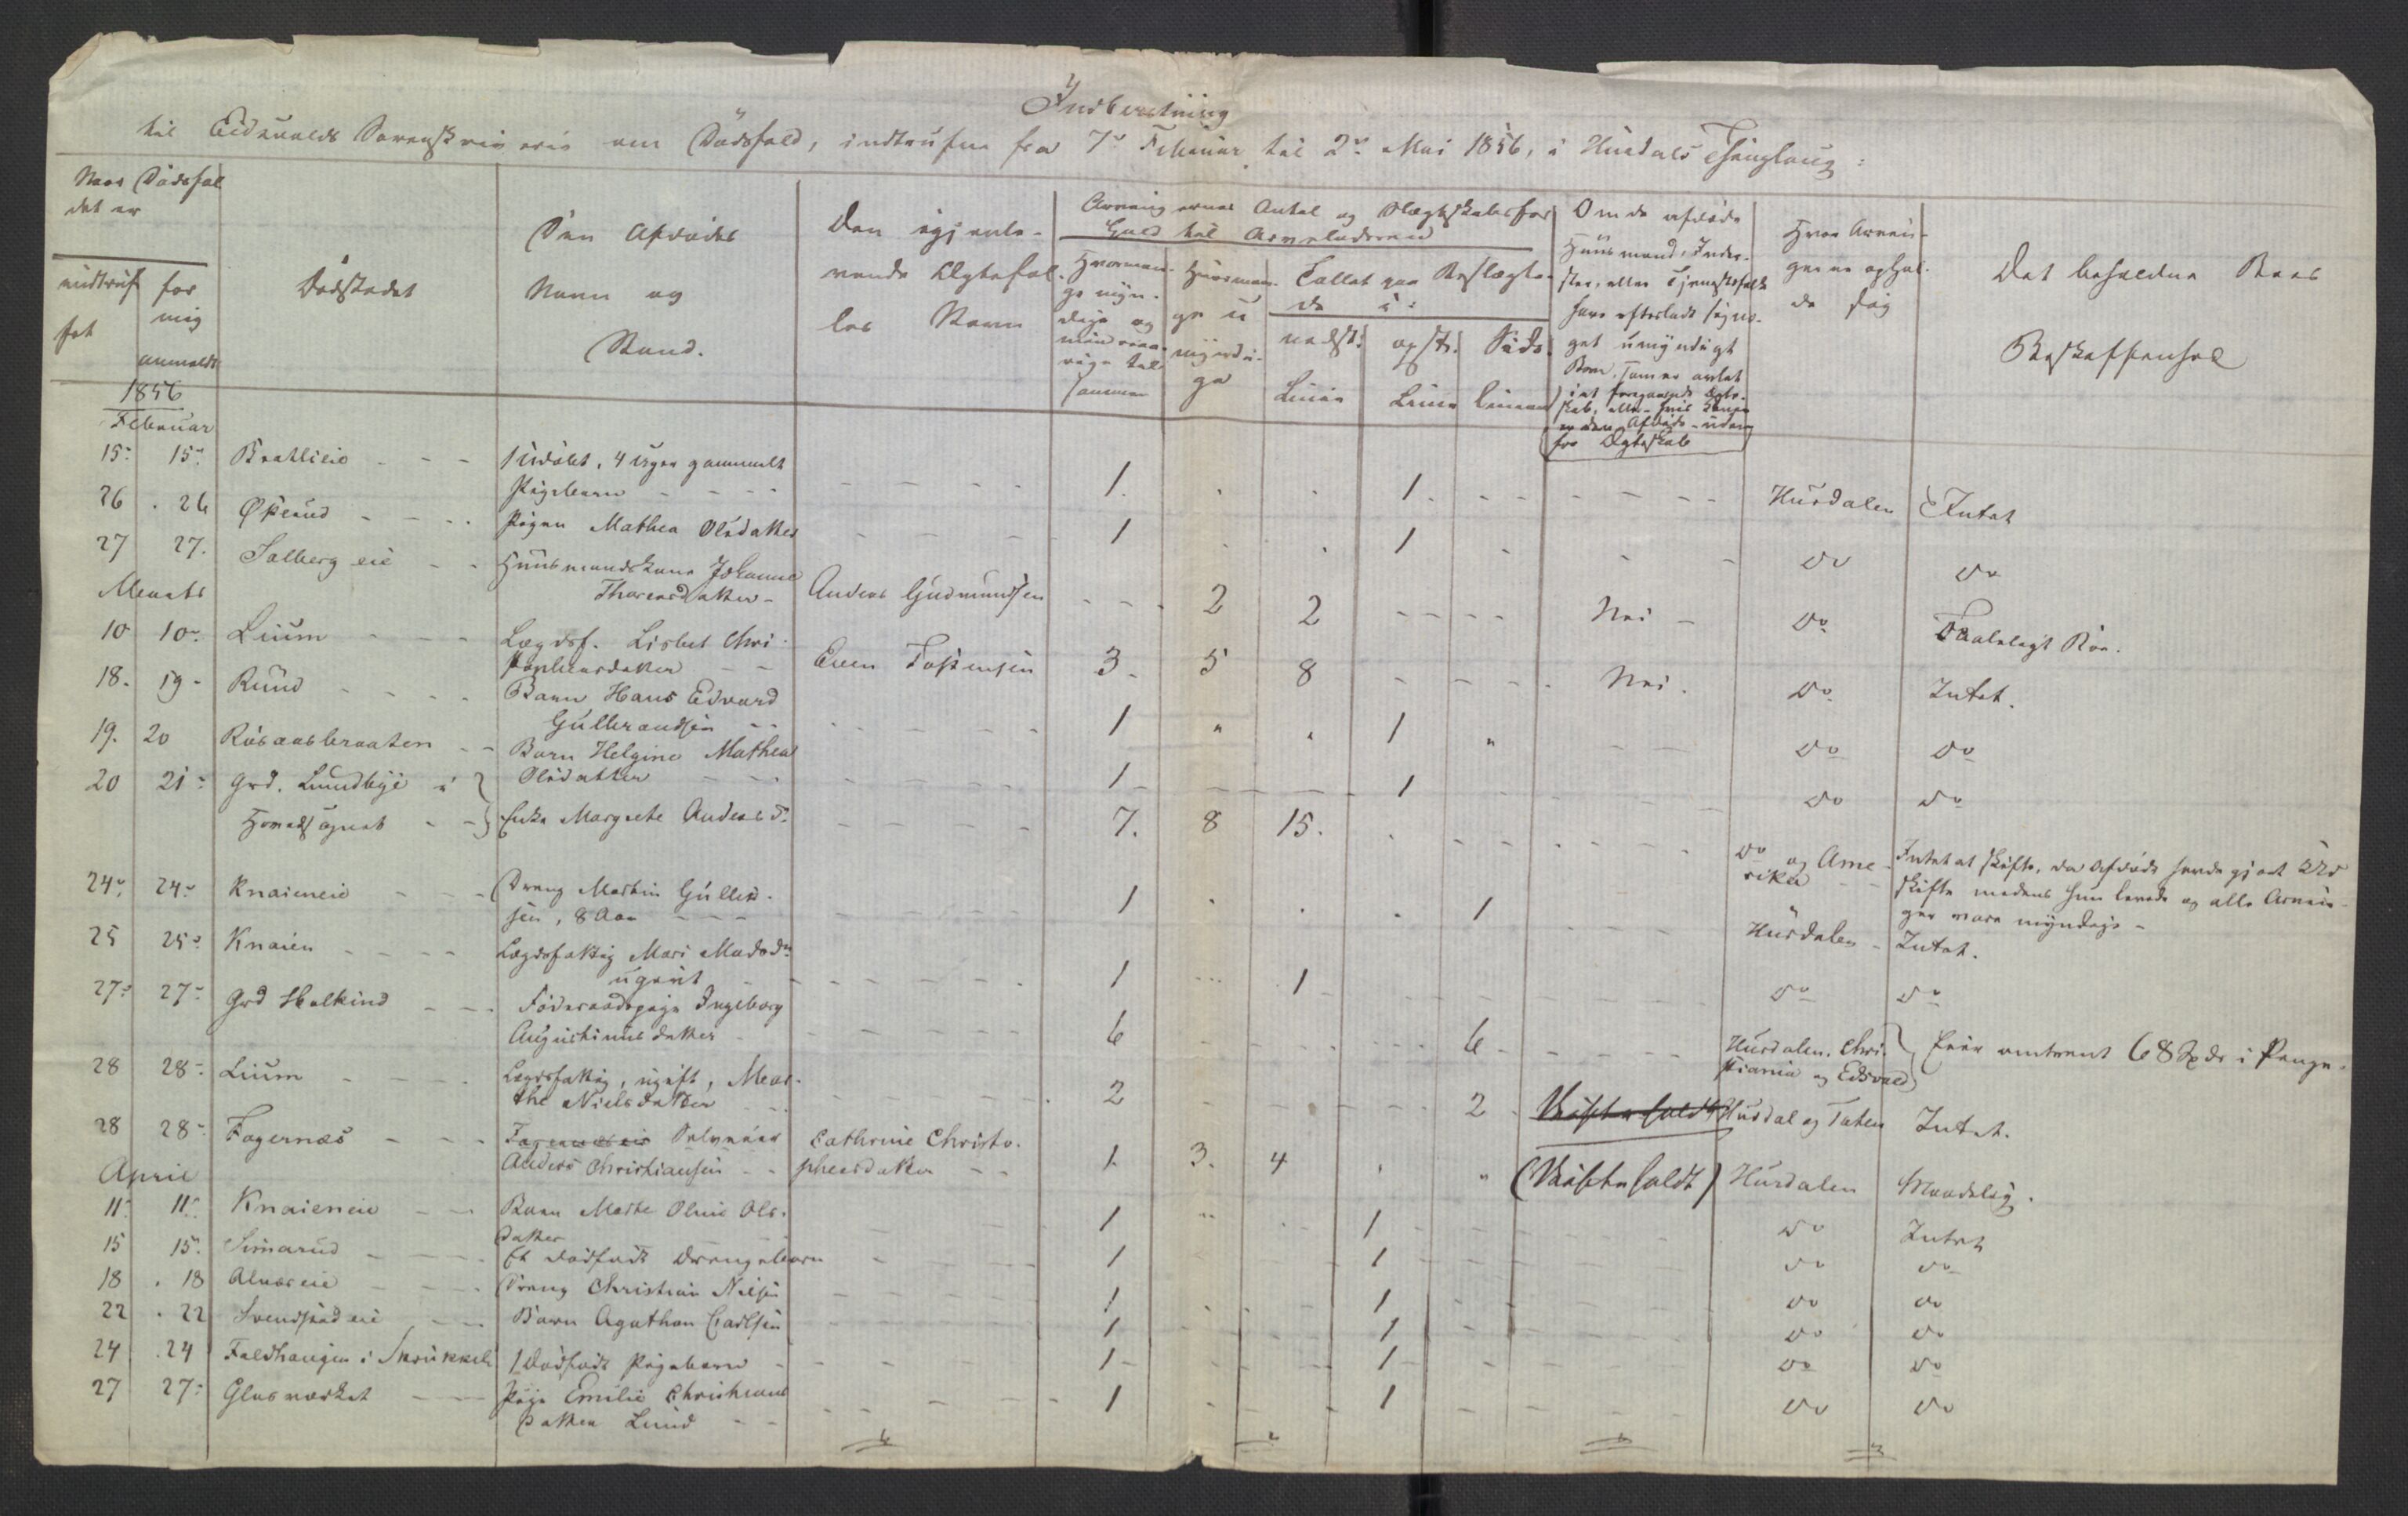 Indberetning
til Eidsvolds Sorenskriveri om Dødsfald, indtrufne fra 7de Februar til 2den Mai 1856, i Hurdals Thinglaug:
Naar Dødsfal
det er
indtruf
fet
for
mig
anmeldt
Dødstedet
Den Afdødes
Navn og
Stand.
Den igjenle-
vende Ægtefæl-
les Navn
Arvingernes Antal og Slægtskabsfor
hold til Arveladeren
Hvorman-
ge myn-
dige og
mindreaa-
rige til
sammen
Hvorman-
ge u
myndi-
ge
Tallet paa Beslægte-
de i:
nedst.
Linie
opst.
Linie
Side
Linien
Om de afdøde
Huusmænd, Inder-
ster, eller Tjenestefolk
have efterladt sig no-
get umyndigt
Barn, som er avlet
i et foregaaende Ægte-
skab, eller hvis Konen
er den Afdøde - uden
for Ægteskab
Hvor Arvin-
gerne ophol-
de sig
Det befaldne Boes
Beskaffenhed
1856
Februar
15. 15. Brattlieie - - - 1 udøbt, 4 Uger gammelt
Pigebarn - - - - 1. . . 1. - - - Hurdalen Intet
26 . 26 Øserud - - - Pigen Mathea Olsdatter - - - 1 . . 1 - - do do
27 27. Solberg eie - - Huusmandskone Johanne
Thoresdatter - Anders Gudmundsen - - - 2 2 - - - - Nei - do Ubetalelegt Boe.
Marts
10 10. Lium - - - Lægdsf. Lisbet Chri-
stophersdatter - - Even Tostensen 3 - 5 8 - - - - Nei. do Intet.
18. 19 - Ruud - - - - Barn Hans Edvard
Gulbrandsen - - - - - 1 " " 1 " - - do do
19. 20 Rusaasbraaten - - Barn Helgine Mathea
Olsdatter - - - - - - 1 - - - 1 - - do do
20 21 - Grd. Lundbye i
Hovedsognet - - Enke Margrete Anders D. - - - - 7. 8 15. . - - - - - do og Ame-
rika - - Intet at skifte, da Afdøde havde gjort Ud
skifte medens hun levede og alle Arvin-
ger vare myndige -
24. 24. Knaieneie - - - Dreng Martin Gulbr.
sen, 8 Aar - - - - - - 1 . . . 1 - - - Hurdalen - Intet.
25 25. Knaien - - - - Lægdsfattig Mari Madsdr
ugivt - - - - - - 1 - - - 1 - - - - - do do
27. 27. Grd Halkind - - - Føderaadspige Ingeborg
Augustinusdatter - - - - - 6 - - - - 6 - - - - - Hurdalen, Chri-
stiania og Eidsvold Eier omtrent 68 Spdr i Penge.
28 28 - Lium - - - - Lægdsfattig, ugift, Mar-
the Nielsdatter - - - - - - 2 - - - - - 2 - Hurdal og Toten Intet.
28 28 - Fagernæs - - - Selveier
Anders Christiansen - - Cathrine Christo-
phersdatter - - 1. 3. 4 . " Hurdalen Maadelig.
April
11. 11. Knaieneie - - Barn Marthe Oline Ols-
datter - - - 1 " - - 1 - - - do Intet
15 15. Simarud - - - Et dødfødt Drengebarn - - - 1 - - 1 - - - do do
18 . 18 Alnæseie - - - Dreng Christian Nilsen - - - - 1 . - - 1 - - - do do
22 . 22 Svendstad eie - - Barn Agathon Carlsen - - - - 1 - - - 1 - - - do do
24 . 24 Faldhaugen i Skrukkeli 1 Dødfødt Pigebarn - - - - 1 - - - 1 - - - - do do
27 27. Glasværket - - Pige Emilie Christians
datter Lund - - - - - - 1 - - - 1 - - - - do do